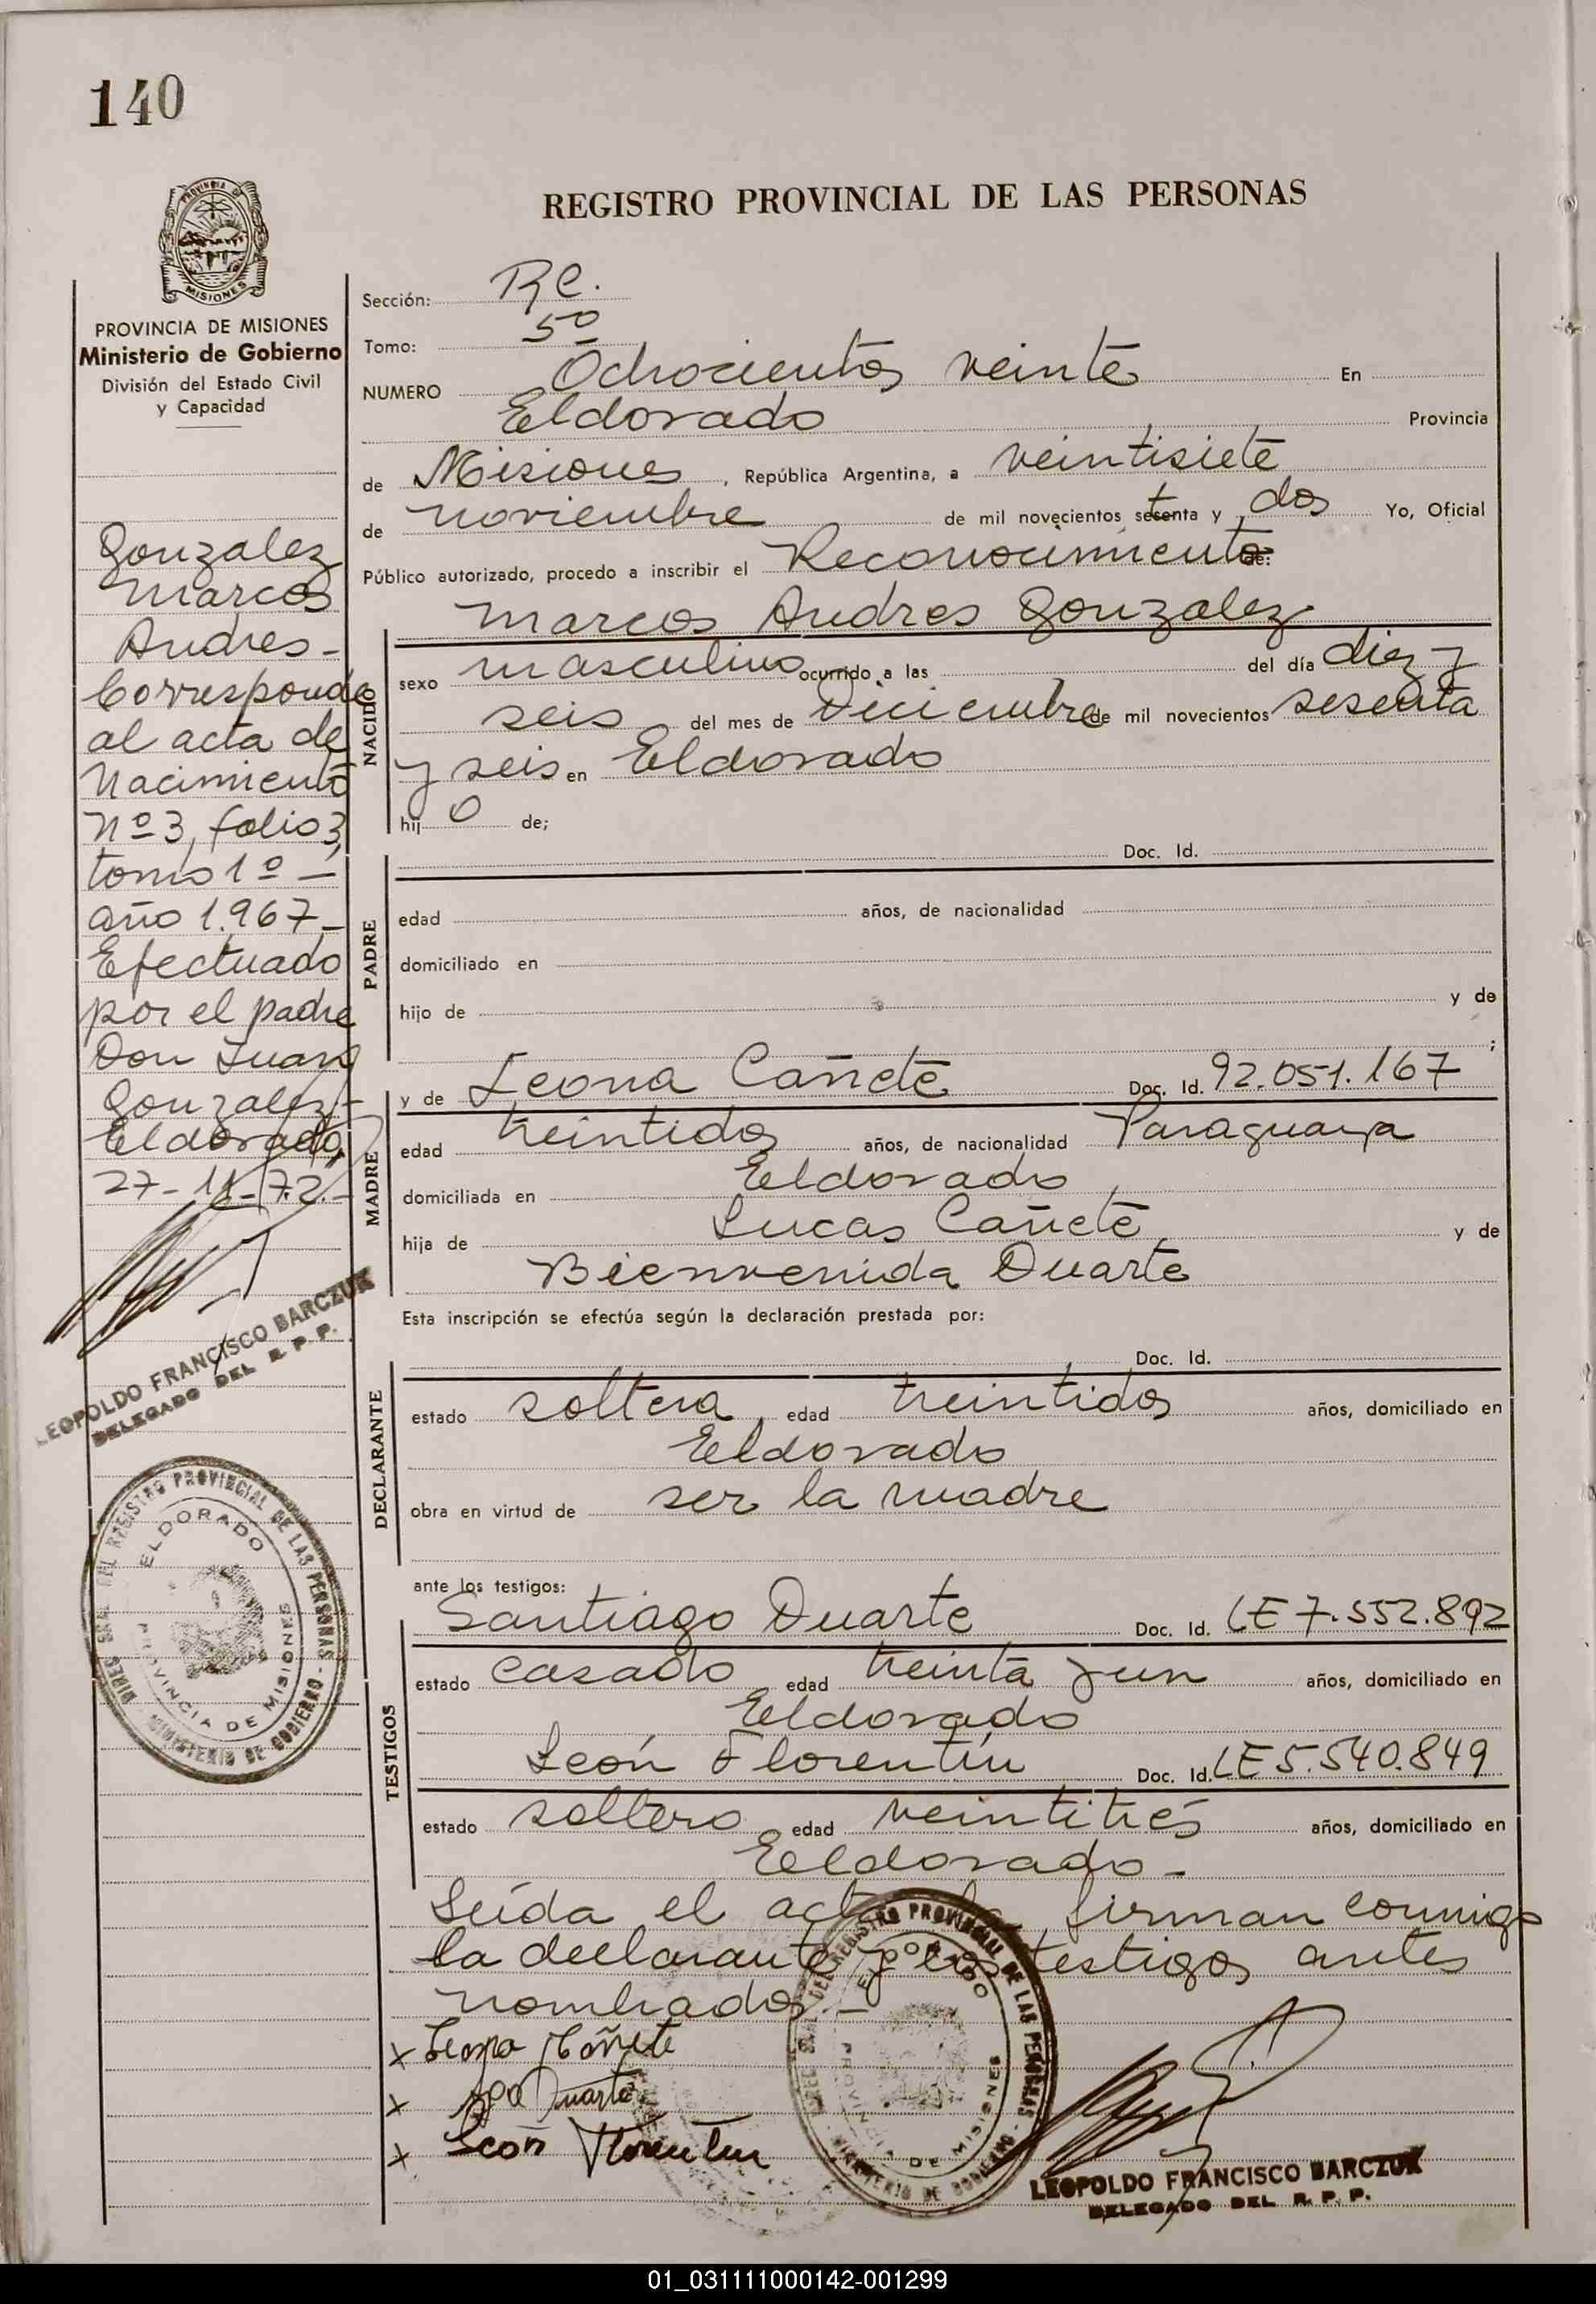 140
REGISTRO PROVINCIAL DE LAS PERSONAS
PROVINCIA DE MISIONES
MISIONES
PROVINCIA DE MISIONES
Ministerio de Gobierno
División del Estado Civil
y Capacidad
Gonzalez
Marcos
Andres -
Corresponde
al acta de
Nacimiento
Nº 3, folio 3,
tomo 1º -
año 1.967 -
Efectuado
por el padre
Don Juan
Gonzalez -
Eldorado,
27-11-72.-
LEOPOLDO FRANCISCO BARCZUK
DELEGADO DEL R. P. P.
REGISTRO PROVINCIAL DE LAS PERSONAS - MINISTERIO DE GOBIERNO
ELDORADO
PROVINCIA DE MISIONES
Sección: RC.
Tomo: 5º
NUMERO Ochocientos veinte En
Eldorado Provincia
de Misiones, República Argentina, a veintisiete
de noviembre de mil novecientos setenta y dos Yo, Oficial
Público autorizado, procedo a inscribir el Reconocimiento de:
Marcos Andres Gonzalez
NACIDO
sexo masculino ocurrido a las del día diez y
seis del mes de Diciembre de mil novecientos sesenta
y seis en Eldorado
hij o de;
PADRE
Doc. Id.
edad años, de nacionalidad
domiciliado en
hijo de y de
;
MADRE
y de Leona Cañete Doc. Id. 92.051.167
edad treintidos años, de nacionalidad Paraguaya
domiciliada en Eldorado,
hija de Lucas Cañete y de
Bienvenida Duarte
Esta inscripción se efectúa según la declaración prestada por:
DECLARANTE
Doc. Id.
estado soltera, edad treintidos años, domiciliado en
Eldorado
obra en virtud de ser la madre
ante los testigos:
TESTIGOS
Santiago Duarte Doc. Id. LE 7.552.892
estado casado edad treinta y un años, domiciliado en
Eldorado
León Florentín Doc. Id. LE 5.540.849
estado soltero edad veintitrés años, domiciliado en
Eldorado -
Leída el acta la firman conmigo
la declarante y los testigos antes
nombrados.-
x Leona Cañete
x Sgo Duarte
x León Florentin
REGISTRO PROVINCIAL DE LAS PERSONAS - MINISTERIO DE GOBIERNO
ELDORADO
PROVINCIA DE MISIONES
LEOPOLDO FRANCISCO BARCZUK
DELEGADO DEL R. P. P.
01_031111000142-001299